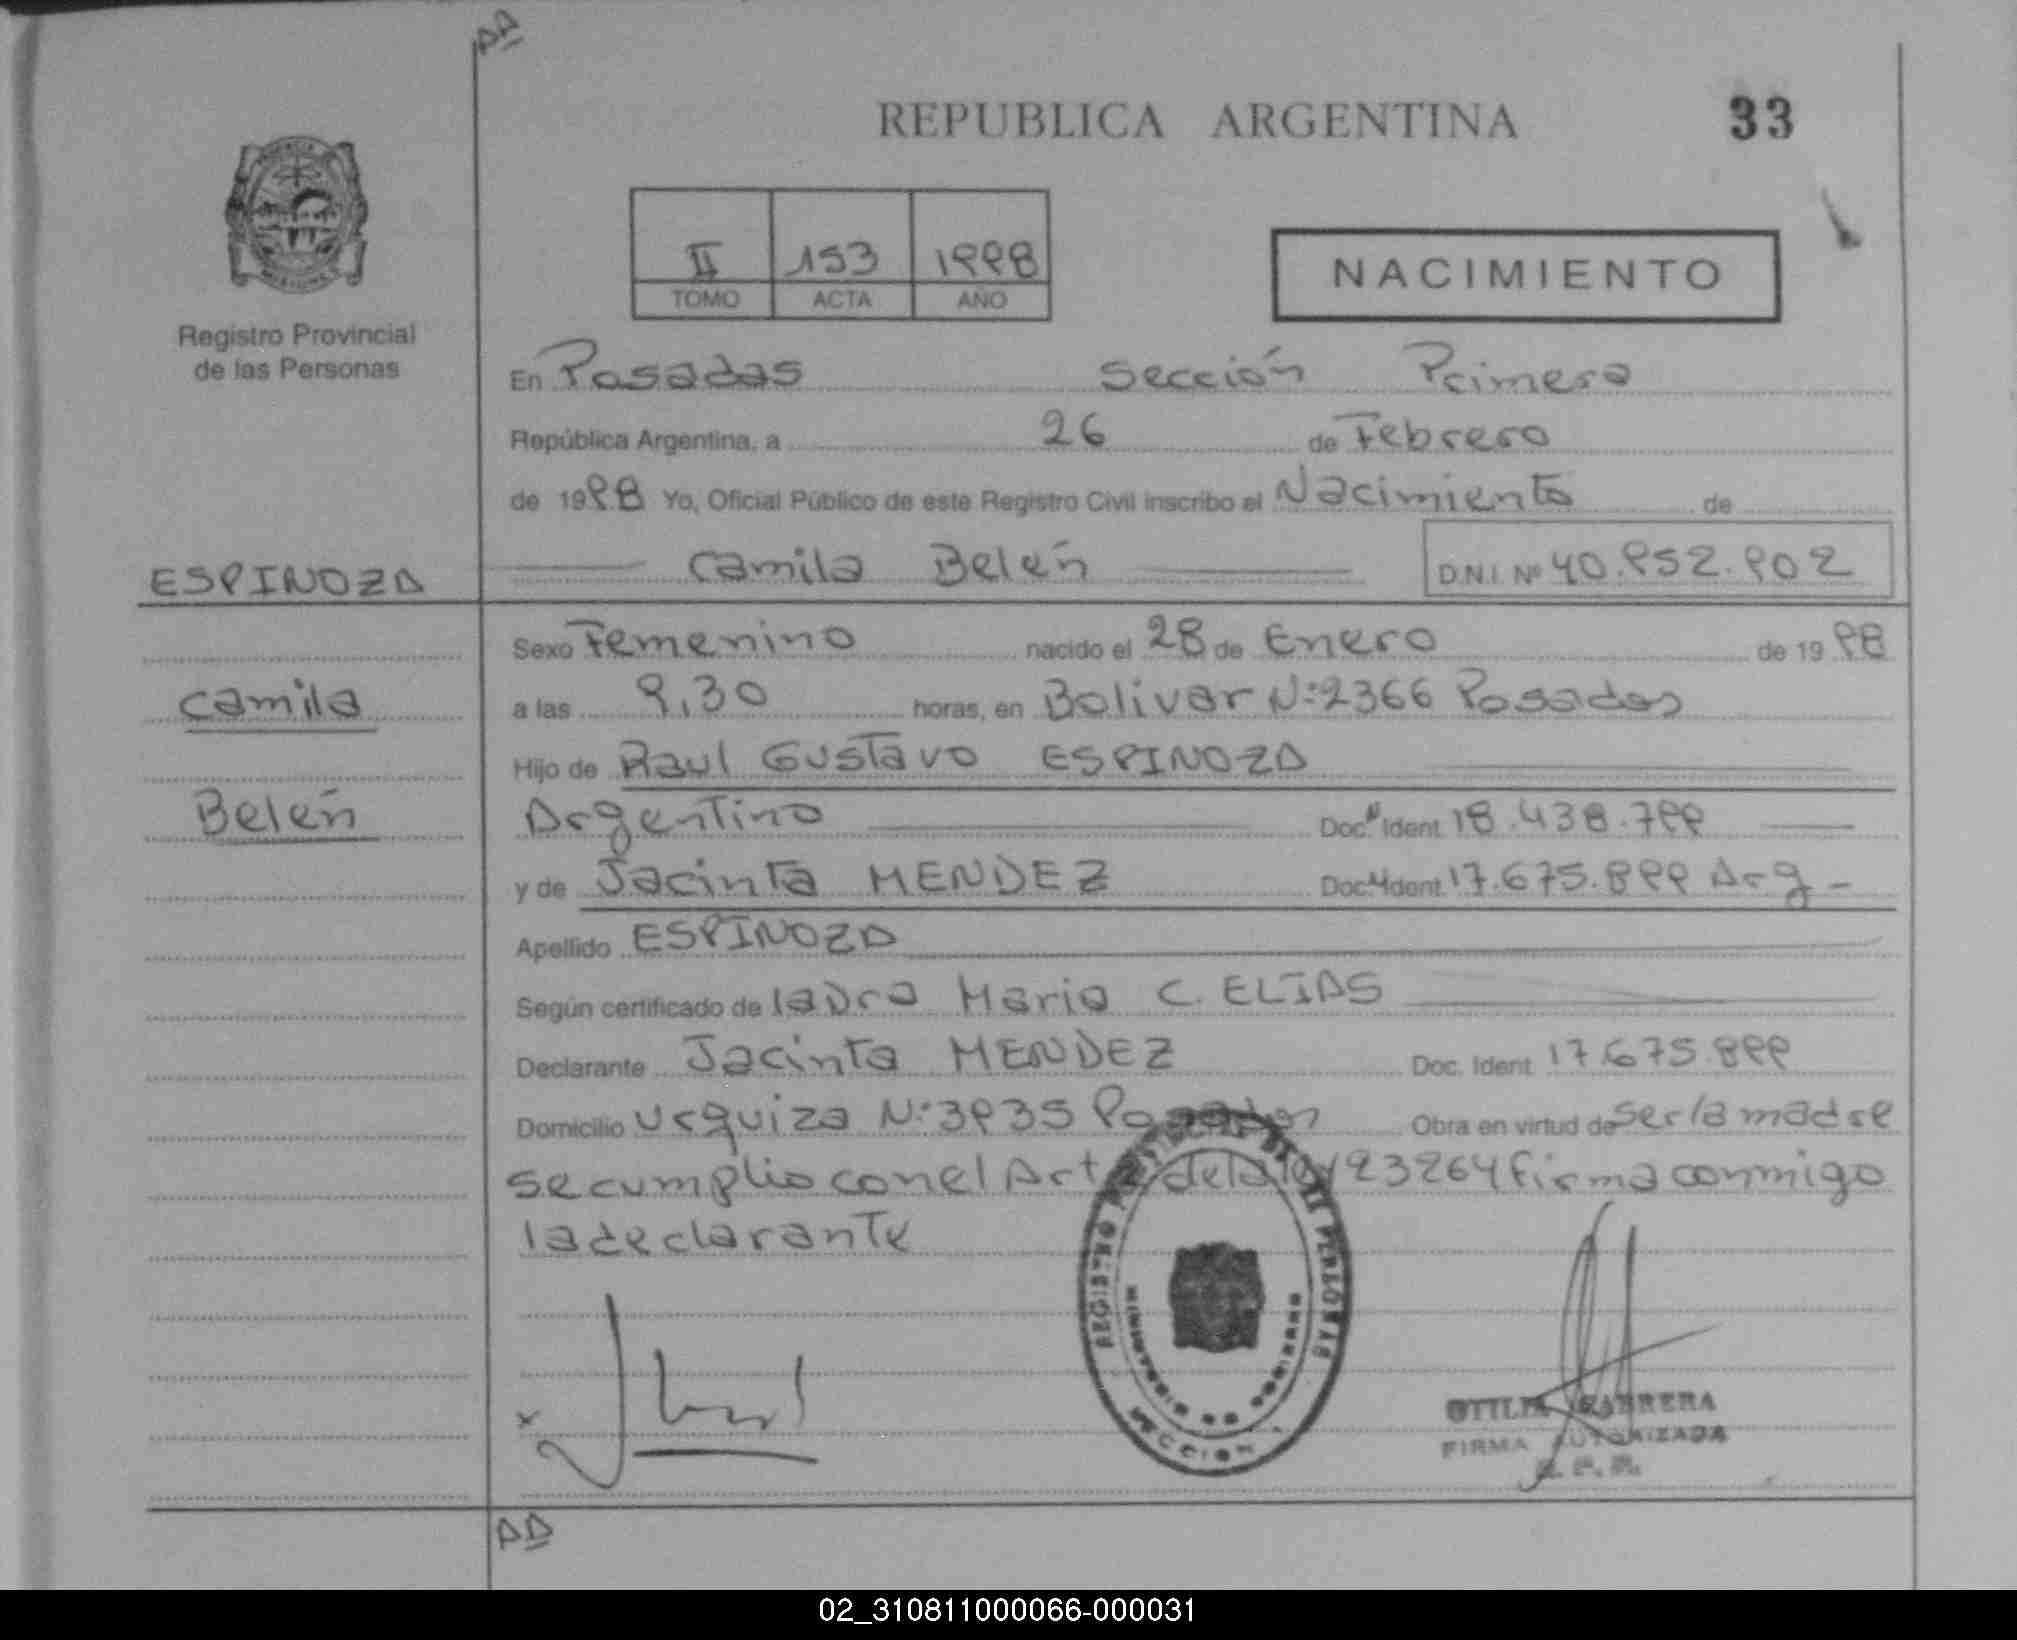 AA
REPUBLICA ARGENTINA
33
II 153 1998
TOMO ACTA AÑO
NACIMIENTO
Registro Provincial
de las Personas
En Posadas Sección Primera
República Argentina, a 26 de Febrero
de 1998 Yo, Oficial Público de este Registro Civil inscribo el Nacimiento de
ESPINOZA
Camila Belén D.N.I. Nº 40.952.902
Sexo Femenino nacido el 28 de Enero de 19 98
Camila
a las 9,30 horas, en Bolivar Nº 2366 Posadas
Hijo de Raul Gustavo ESPINOZA
Belén
Argentino Doc. Ident. 18.438.799
y de Jacinta MENDEZ Doc. Ident. 17.675.899 Arg -
Apellido ESPINOZA
Según certificado de la Dra Maria C. ELIAS
Declarante Jacinta MENDEZ Doc. Ident. 17.675.899
Domicilio Urquiza Nº 3935 Posadas Obra en virtud de ser la madre
se cumplio con el Art de la ley 23264 firma conmigo
la declarante
REGISTRO PROVINCIAL DE LAS PERSONAS
MINISTERIO DE GOBIERNO
SECCION 1
x
OTILIA CABRERA
FIRMA AUTORIZADA
R. P. P.
AA
02_310811000066-000031